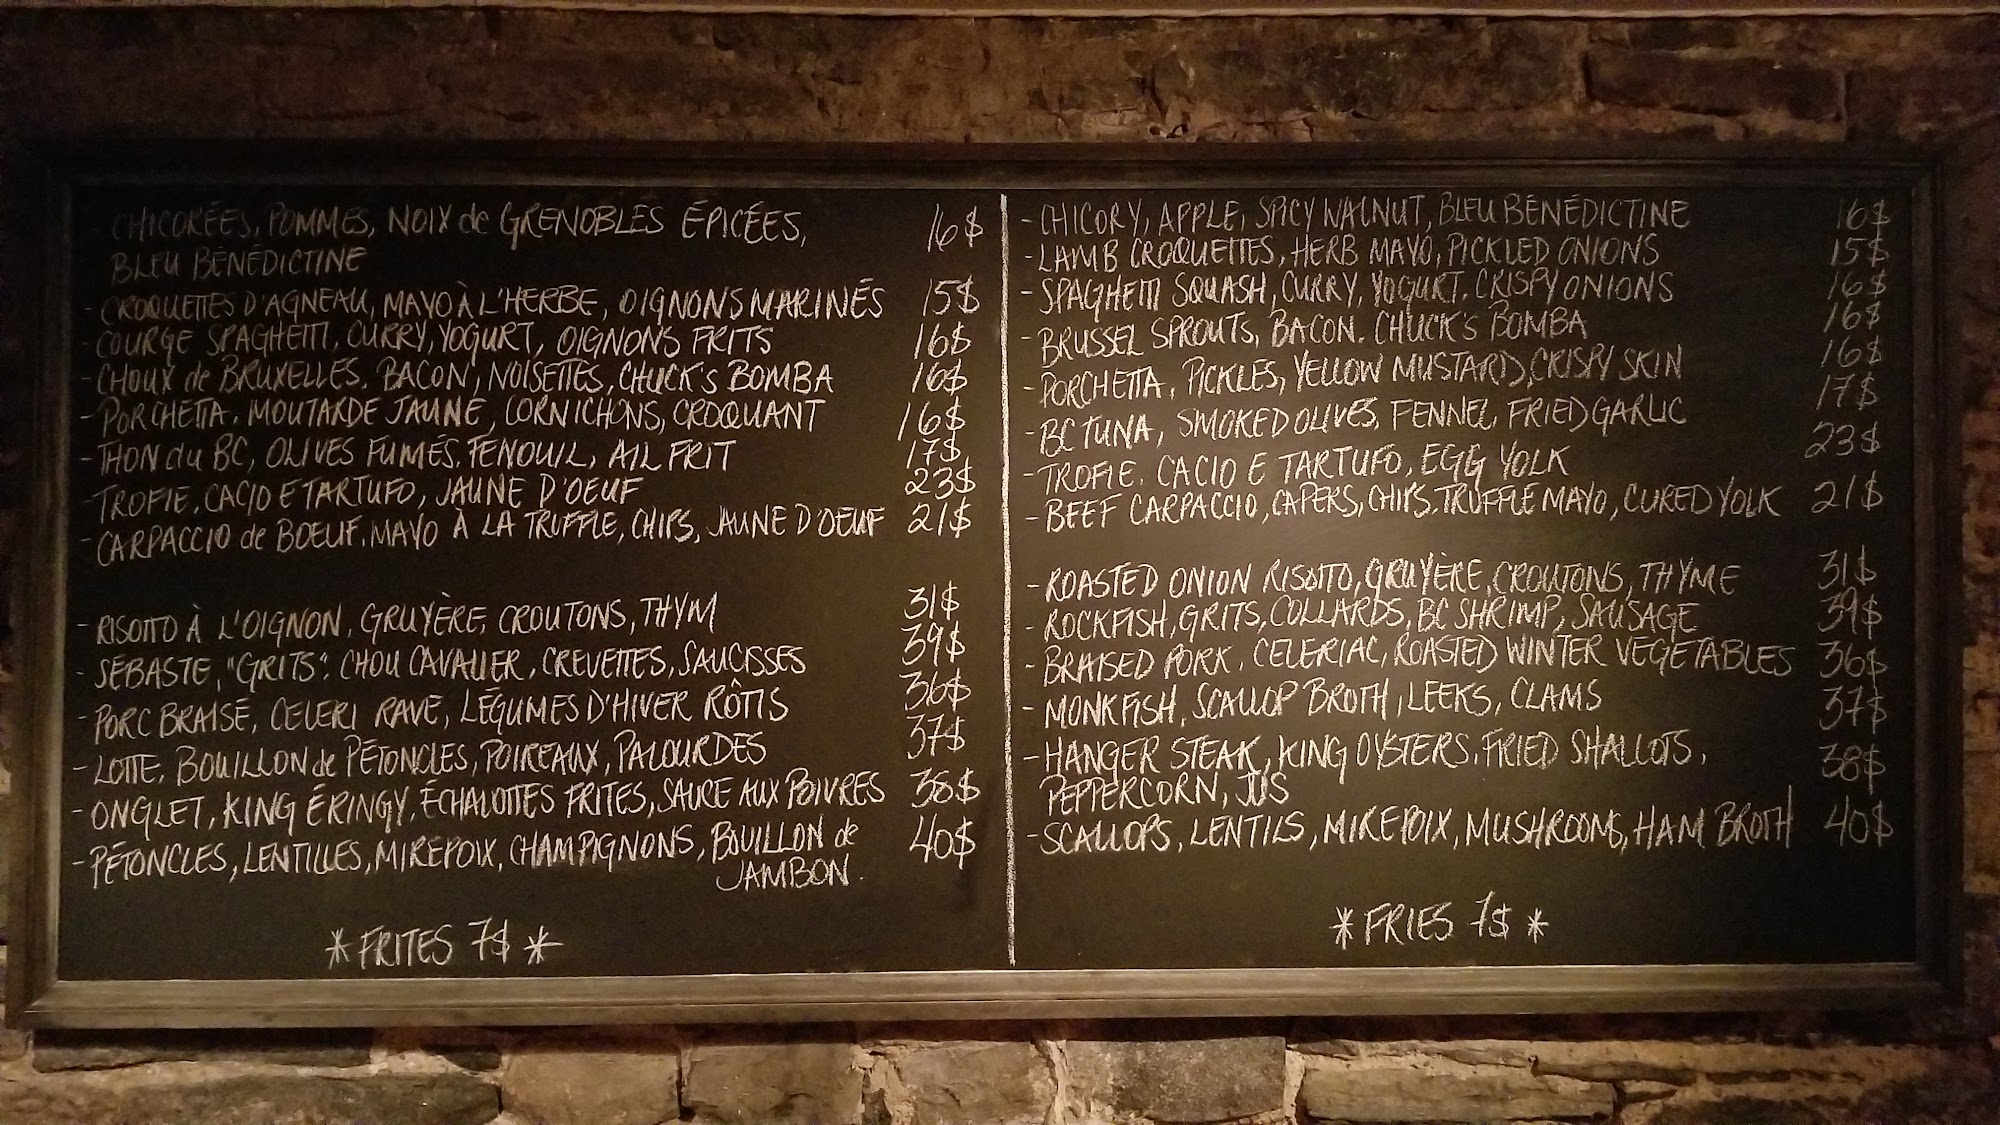 CHICORÉES, POMMES, NOIX de GRENOBLES ÉPICÉES, 16$
BLEU BÉNÉDICTINE
- CROQUETTES D'AGNEAU, MAYO À L'HERBE, OIGNONS MARINÉS 15$
- COURGE SPAGHETTI, CURRY, YOGURT, OIGNONS FRITS 16$
- CHOUX de BRUXELLES, BACON, NOISETTES, CHUCK'S BOMBA 16$
- PORCHETTA, MOUTARDE JAUNE, CORNICHONS, CROQUANT 16$
- THON du BC, OLIVES FUMÉS, FENOUIL, AIL FRIT 17$
- TROFIE, CACIO E TARTUFO, JAUNE D'OEUF 23$
- CARPACCIO de BOEUF, MAYO À LA TRUFFLE, CHIPS, JAUNE D'OEUF 21$
- RISOTTO À L'OIGNON, GRUYÈRE, CROUTONS, THYM 31$
- SÉBASTE, "GRITS", CHOU CAVALIER, CREVETTES, SAUCISSES 39$
- PORC BRAISÉ, CELERI RAVE, LÉGUMES D'HIVER RÔTIS 36$
- LOTTE, BOUILLON de PÉTONCLES, POIREAUX, PALOURDES 37$
- ONGLET, KING ÉRINGY, ÉCHALOTTES FRITES, SAUCE AUX POIVRES 38$
- PÉTONCLES, LENTILLES, MIREPOIX, CHAMPIGNONS, BOUILLON de 40$
JAMBON.
* FRITES 7$ *
- CHICORY, APPLE, SPICY WALNUT, BLEU BÉNÉDICTINE 16$
- LAMB CROQUETTES, HERB MAYO, PICKLED ONIONS 15$
- SPAGHETTI SQUASH, CURRY, YOGURT, CRISPY ONIONS 16$
- BRUSSEL SPROUTS, BACON, CHUCK'S BOMBA 16$
- PORCHETTA, PICKLES, YELLOW MUSTARD, CRISPY SKIN 16$
- BC TUNA, SMOKED OLIVES, FENNEL, FRIED GARLIC 17$
- TROFIE, CACIO E TARTUFO, EGG YOLK 23$
- BEEF CARPACCIO, CAPERS, CHIPS, TRUFFLE MAYO, CURED YOLK 21$
- ROASTED ONION RISOTTO, GRUYÈRE, CROUTONS, THYME 31$
- ROCKFISH, GRITS, COLLARDS, BC SHRIMP, SAUSAGE 39$
- BRAISED PORK, CELERIAC, ROASTED WINTER VEGETABLES 36$
- MONKFISH, SCALLOP BROTH, LEEKS, CLAMS 37$
- HANGER STEAK, KING OYSTERS, FRIED SHALLOTS, 38$
PEPPERCORN, JUS
- SCALLOPS, LENTILS, MIREPOIX, MUSHROOMS, HAM BROTH 40$
* FRIES 7$ *